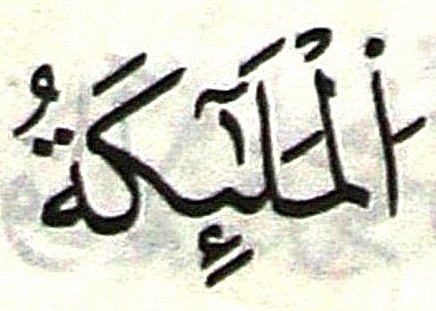 اَ۬لْمَلَٰٓئِكَةُ